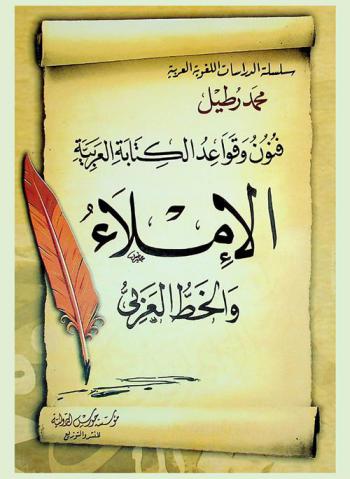 سلسلة الدراسات اللغوية العربية
محمد رطيل
فنون وقواعد الكتابة العربية
الإملاء
والخط العربي
مؤسسة حورس الدولية
للنشر والتوزيع